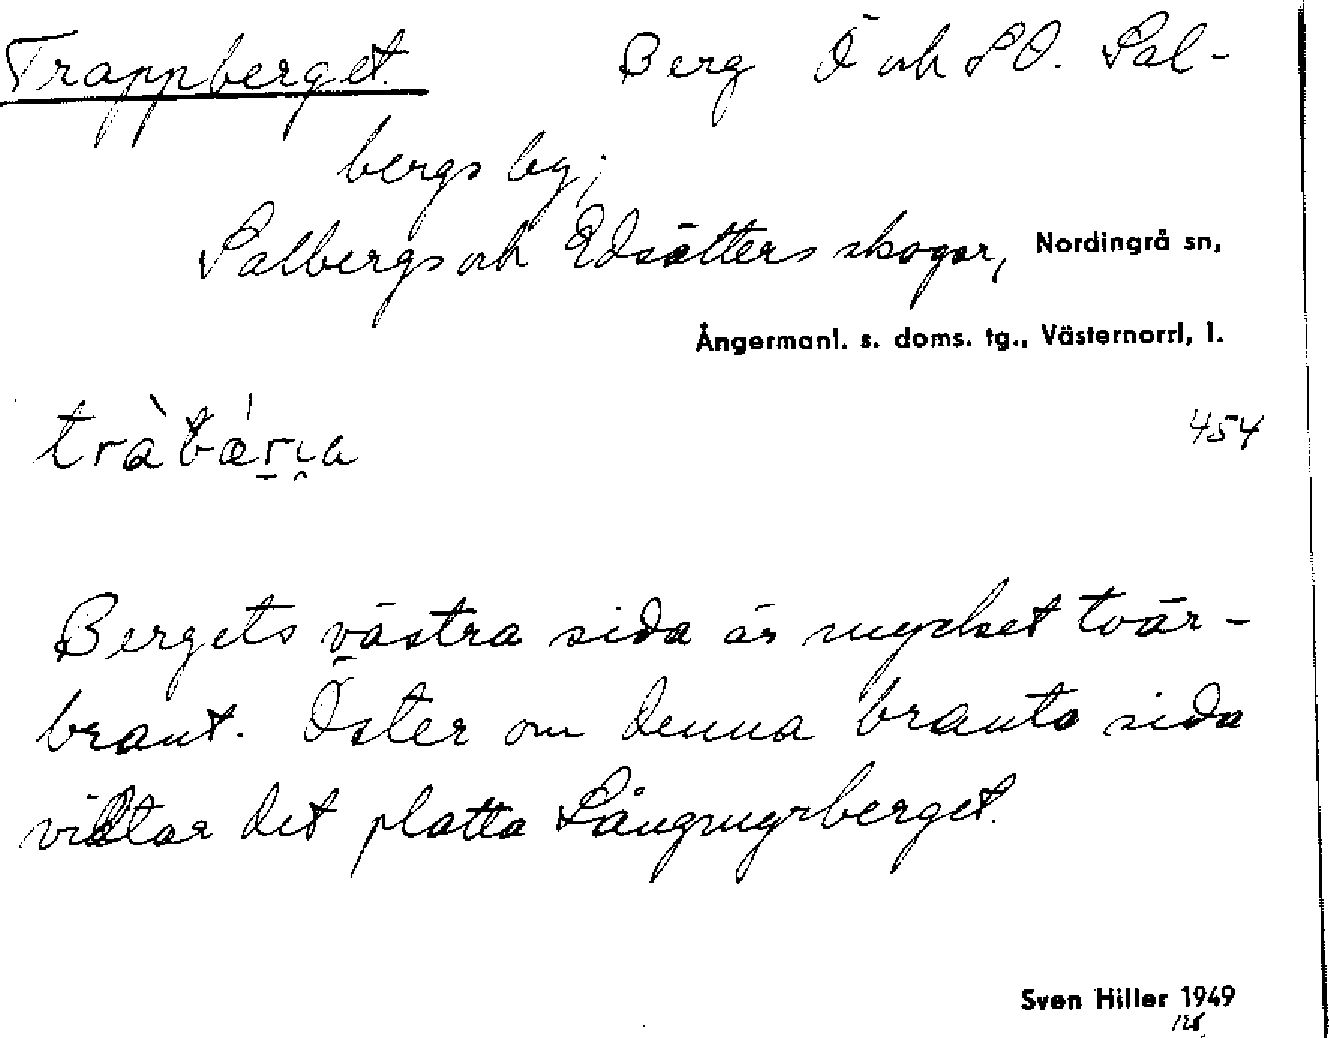 Trappberget. Berg Ö och SO. Sal-
bergs by;
Salbergs och Edsätters skogar, Nordingrå sn,
Ångermanl. s. doms. tg., Västernorrl, l.
tràbáṟi̯a 454
Bergets västra sida är mycket tvär-
brant. Öster om denna branta sida
vidtar det platta Långmyrberget.
Sven Hiller 1949